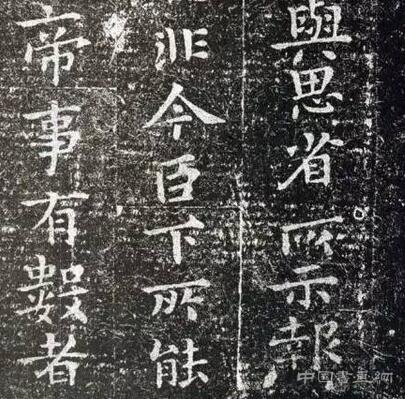 與思省所示報
非今臣下所能
帝事有數者
中国書画网